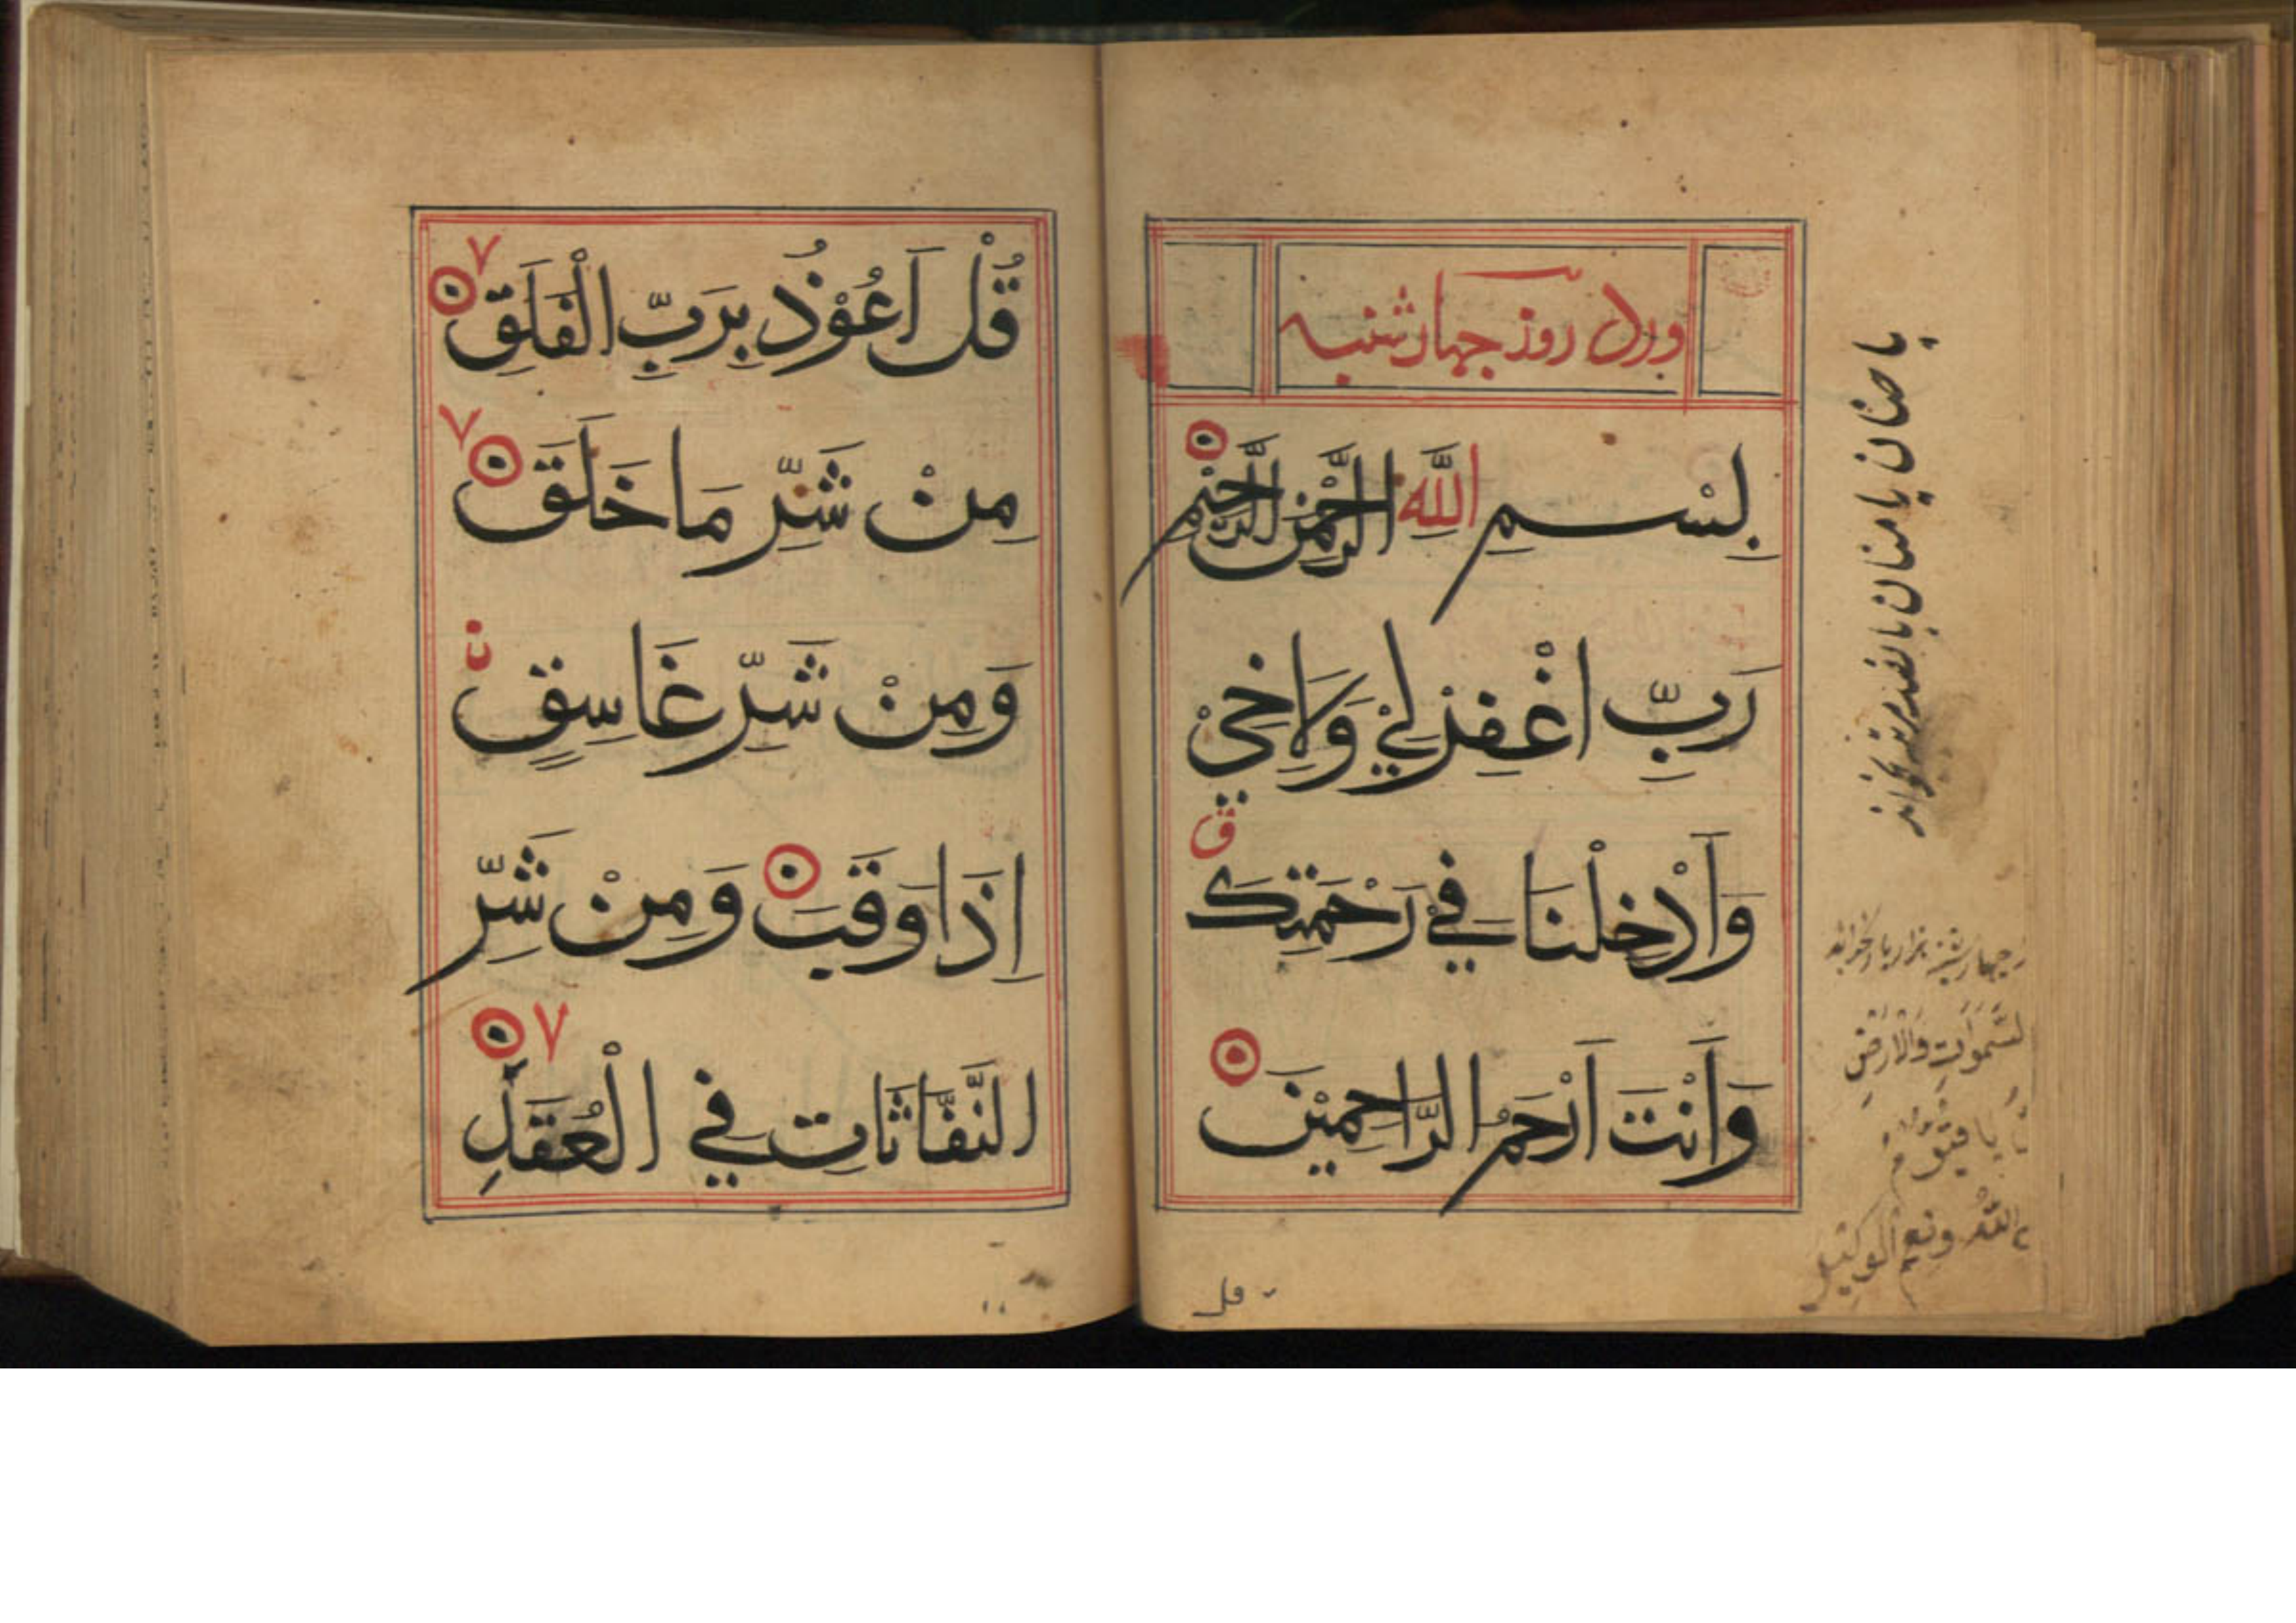 ورد روز چهارشنبه
بِسْمِ اللَّهِ الرَّحْمٰنِ الرَّحِيْمِ
رَبِّ اغْفِرْلِيْ وَلِاَخِيْ
وَأَدْخِلْنَا فِيْ رَحْمَتِكَ
وَأَنْتَ أَرْحَمُ الرَّاحِمِيْنَ
قل
یا حنان یا منان
چهارشنبه هزار بار بخواند
السَّمٰوَاتِ وَالْاَرْضِ
یا قیوم
الله ونعم الوكيل
قُلْ اَعُوْذُ بِرَبِّ الْفَلَقِ
مِنْ شَرِّ مَا خَلَقَ
وَمِنْ شَرِّ غَاسِقٍ
اِذَا وَقَبَ وَمِنْ شَرِّ
النَّفَّاثَاتِ فِي الْعُقَدِ